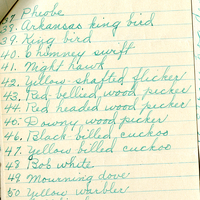 37. Phoebe
38. Arkansas king bird
39. King bird
40. Chimney swift
41. Night hawk
42. Yellow shafted flicker
43. Red bellied wood pecker
44. Red headed wood pecker
45. Downy wood pecker
46. Black billed cuckoo
47. Yellow billed cuckoo
48 Bob white
49 Mourning dove
50 Yellow warbler